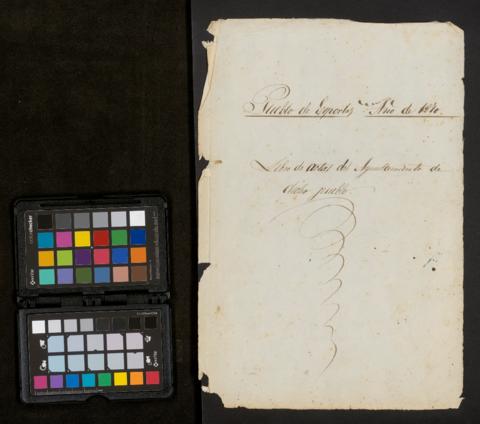 Pueblo de Esporlas Año de 1870.
Libro de actas del Ayuntamiento de
dicho pueblo.